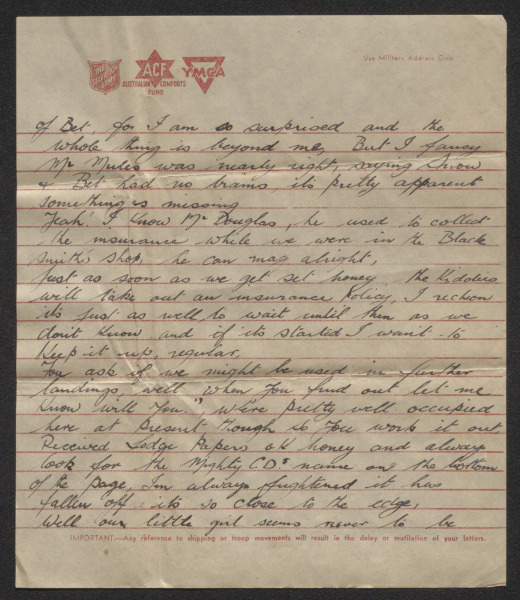 THE SALVATION ARMY
ACF
AUSTRALIAN COMFORTS
FUND
YMCA
Use Military Address Only
of Bet, for I am so surprised and the
whole thing is beyond me, But I fancy
Mr Mules was nearly right, saying Snow
& Bet had no brains, its pretty apparent
something is missing
Yeah! I know Mr Douglas, he used to collect
the insurance while we were in the Black
smith shop, he can mag alright,
Just as soon as we get set honey the Kiddies
will take out an insurance policy, I reckon
its just as well to wait until then as we
don't know and if its started I want to
Keep it up, regular,
You ask if we might be used in further
landings, well "when you find out let me
know will you", we're pretty well occupied
here at present though so you work it out
Received Lodge Papers ok honey and always
look for the Mighty C.D's name on the bottom
of the page, I'm always frightened it has
fallen off its so close to the edge,
Well our little girl seems never to be
IMPORTANT.—Any reference to shipping or troop movements will result in the delay or mutilation of your letters.